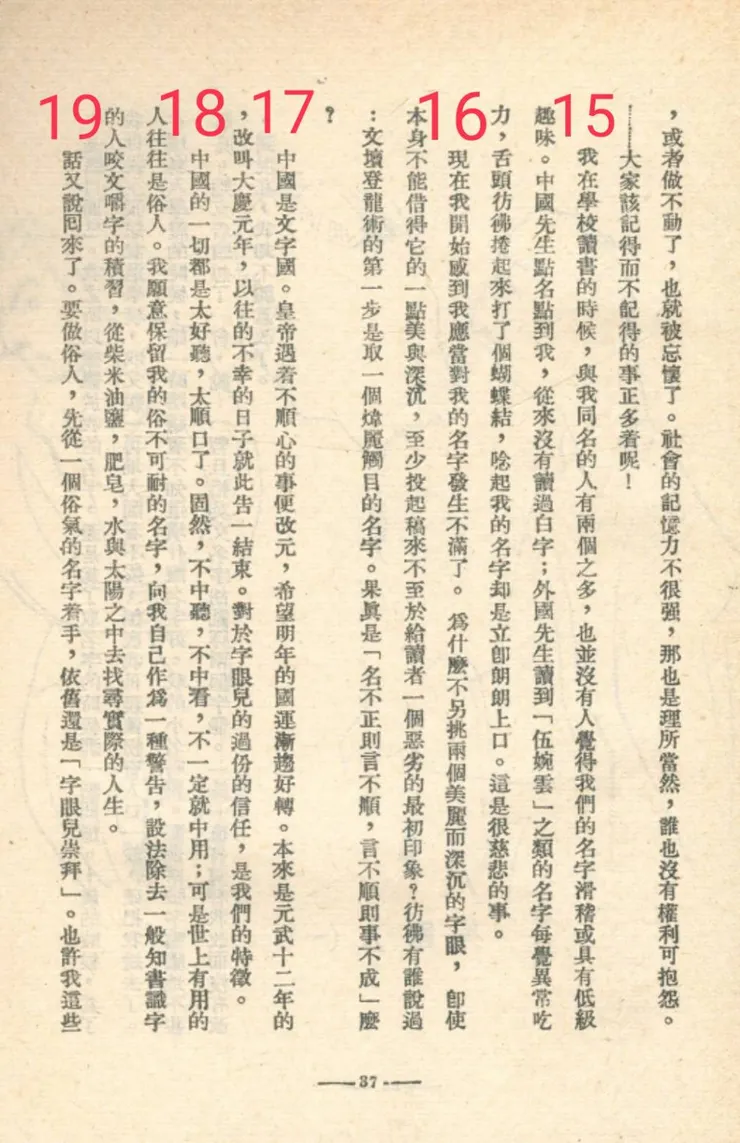 15
16
17
18
19
，或者做不動了，也就被忘懷了。社會的記憶力不很强，那也是理所當然，誰也沒有權利可抱怨。
……大家該記得而不記得的事正多着呢！
我在學校讀書的時候，與我同名的人有兩個之多，也並沒有人覺得我們的名字滑稽或具有低級
趣味。中國先生點名點到我，從來沒有讀過白字；外國先生讀到「伍婉雲」之類的名字每覺異常吃
力，舌頭彷彿捲起來打了個蝴蝶結，唸起我的名字却是立卽朗朗上口。這是很慈悲的事。
現在我開始感到我應當對我的名字發生不滿了。爲什麽不另挑兩個美麗而深沉的字眼，卽使
本身不能借得它的一點美與深沉，至少投起稿來不至於給讀者一個惡劣的最初印象？彷彿有誰說過
：文壇登龍術的第一步是取一個煒麗觸目的名字。果眞是「名不正則言不順，言不順則事不成」麽
？
中國是文字國。皇帝遇着不順心的事便改元，希望明年的國運漸趨好轉。本來是元武十二年的
，改叫大慶元年，以往的不幸的日子就此告一結束。對於字眼兒的過份的信任，是我們的特徵。
中國的一切都是太好聽，太順口了。固然，不中聽，不中看，不一定就中用；可是世上有用的
人往往是俗人。我願意保留我的俗不可耐的名字，向我自己作爲一種警告，設法除去一般知書識字
的人咬文嚼字的積習，從柴米油鹽，肥皂，水與太陽之中去找尋實際的人生。
話又說回來了。要做俗人，先從一個俗氣的名字着手，依舊還是「字眼兒崇拜」。也許我這些
37